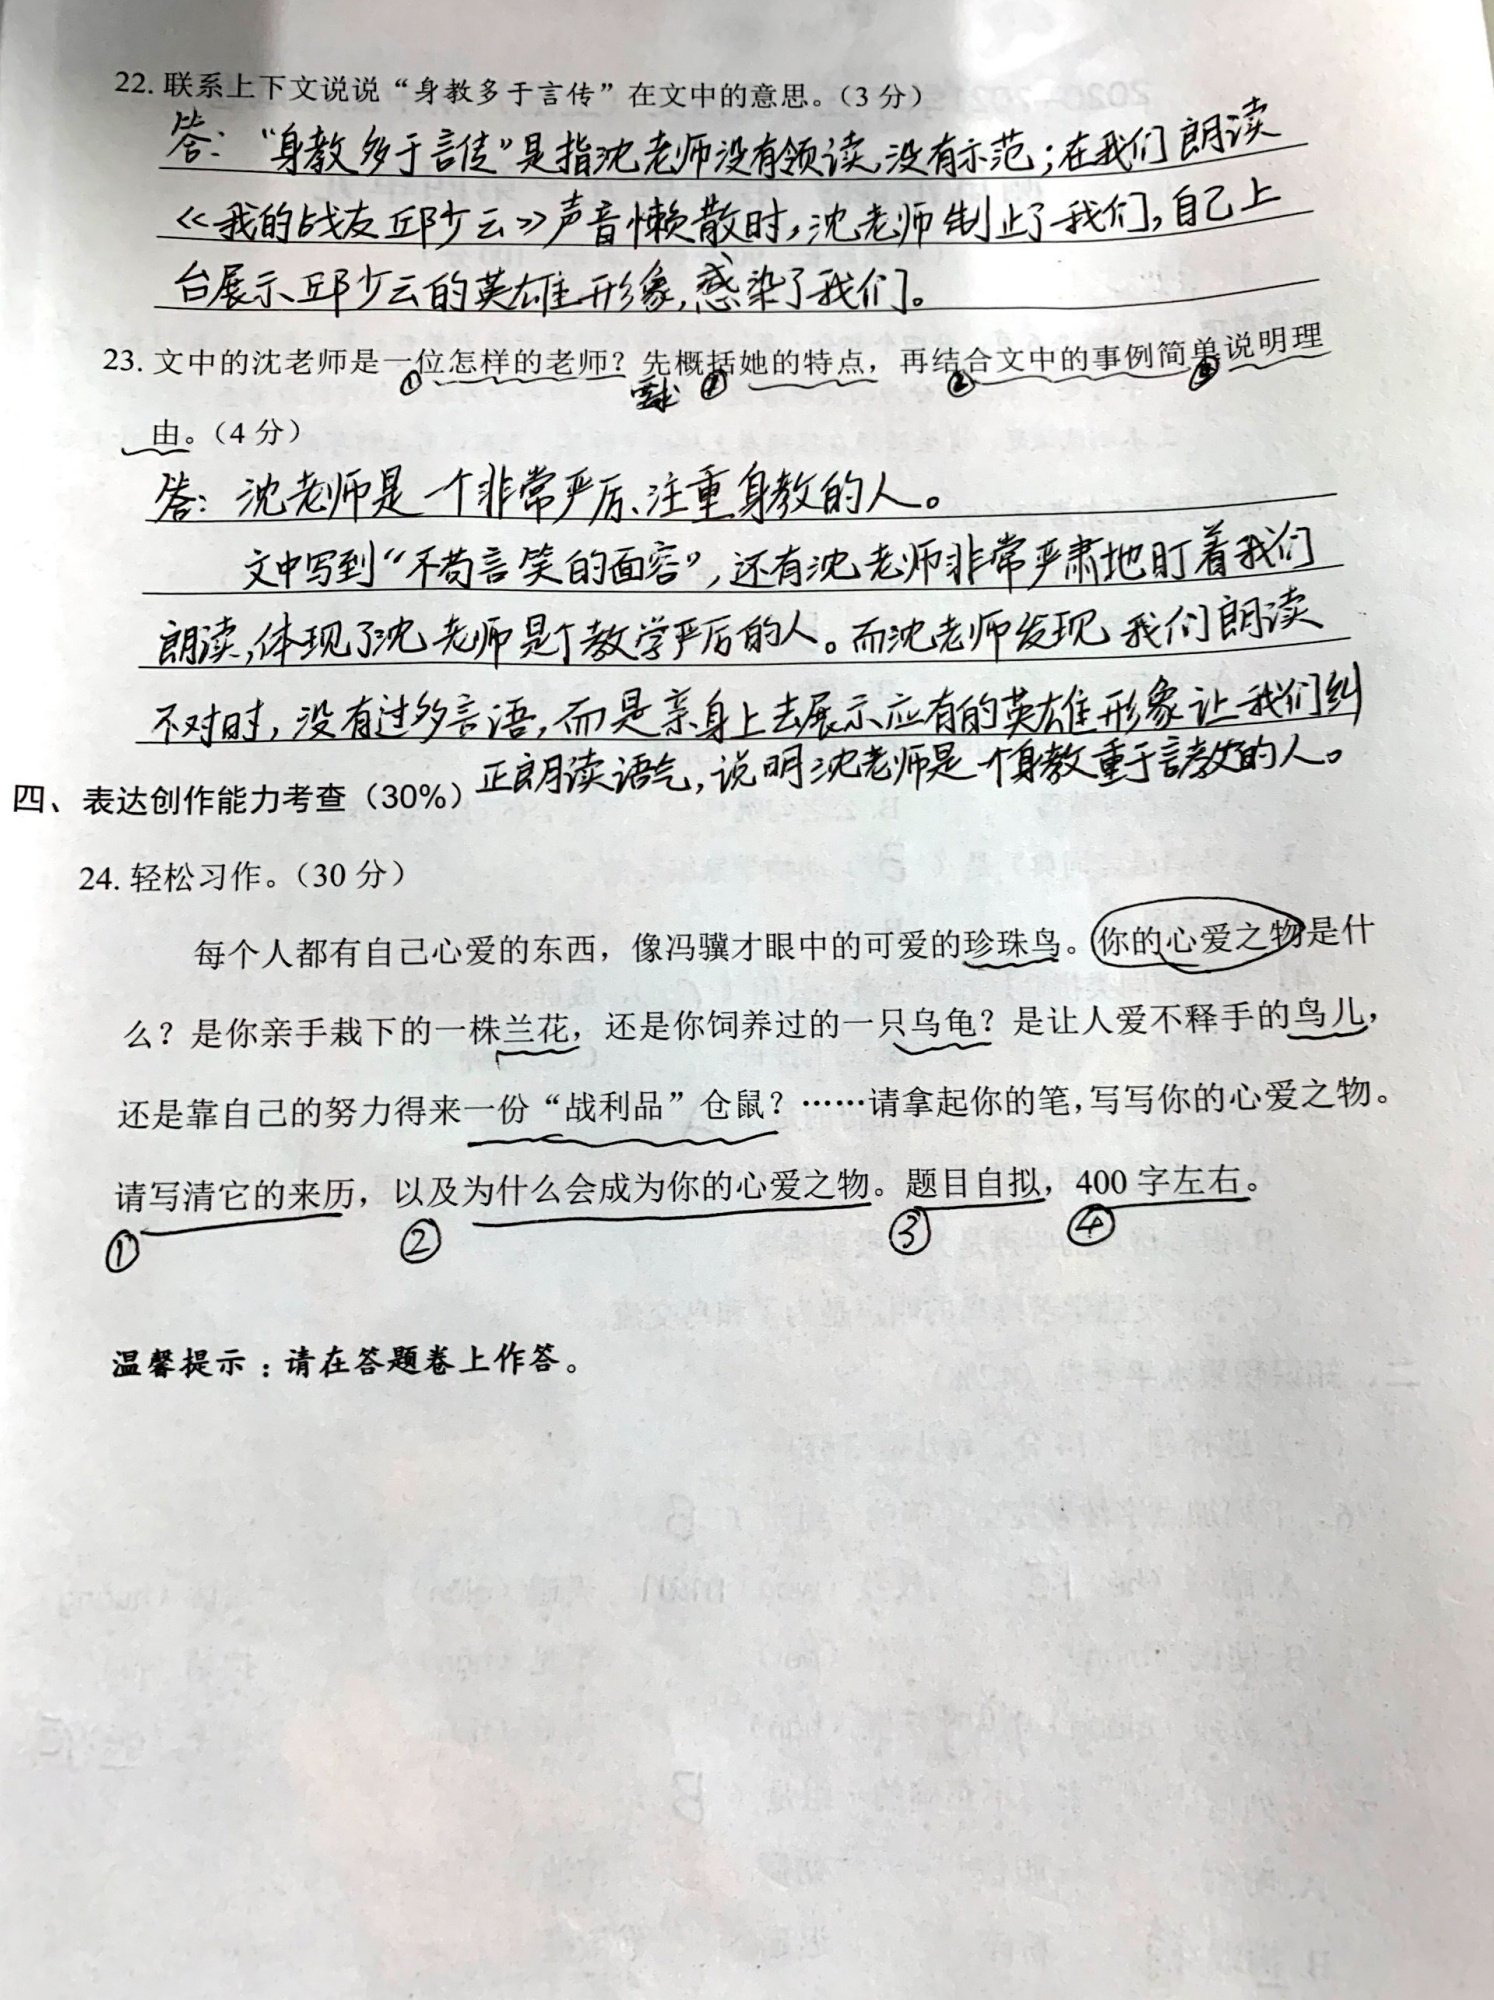 22. 联系上下文说说“身教多于言传”在文中的意思。（3 分）
答：“身教多于言传”是指沈老师没有领读,没有示范；在我们朗读
《我的战友邱少云》声音懒散时,沈老师制止了我们,自己上
台展示邱少云的英雄形象,感染了我们。
23. 文中的沈老师是一位怎样的老师？先概括她的特点，再结合文中的事例简单说明理
① 要求 ① ② ③
由。（4 分）
答：沈老师是一个非常严厉、注重身教的人。
文中写到“不苟言笑的面容”,还有沈老师非常严肃地盯着我们
朗读,体现了沈老师是个教学严厉的人。而沈老师发现我们朗读
不对时,没有过多言语,而是亲身上去展示应有的英雄形象让我们纠
正朗读语气,说明沈老师是个身教重于言教的人。
四、表达创作能力考查（30%）
24. 轻松习作。（30 分）
每个人都有自己心爱的东西，像冯骥才眼中的可爱的珍珠鸟。你的心爱之物是什
么？是你亲手栽下的一株兰花，还是你饲养过的一只乌龟？是让人爱不释手的鸟儿，
还是靠自己的努力得来一份“战利品”仓鼠？……请拿起你的笔,写写你的心爱之物。
请写清它的来历，以及为什么会成为你的心爱之物。题目自拟，400 字左右。
① ② ③ ④
温馨提示：请在答题卷上作答。